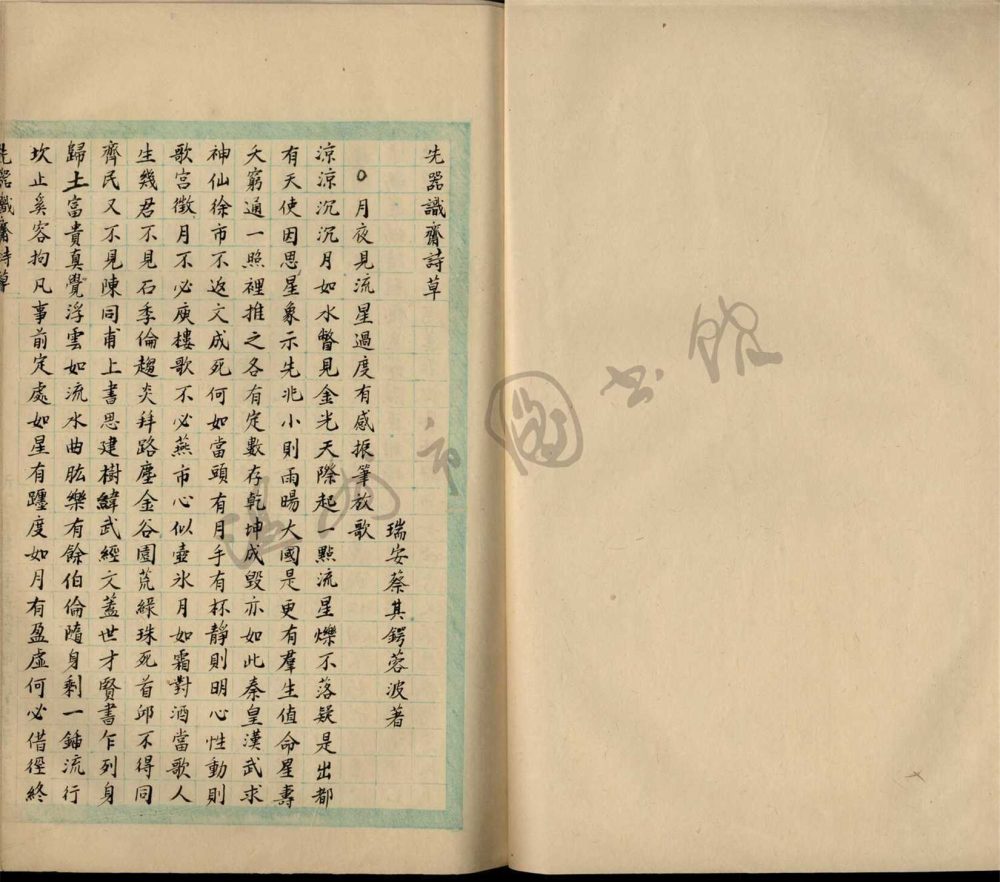 先器識齋詩草
瑞安蔡其鍔蓉波著
○月夜見流星過度有感振筆放歌
涼涼沉沉月如水瞥見金光天際起一點流星爍不落疑是出都
有天使因思星象示先兆小則雨暘大國是更有羣生值命星壽
夭窮通一照裡推之各有定數存乾坤成毀亦如此秦皇漢武求
神仙徐市不返文成死何如當頭有月手有杯靜則明心性動則
歌宮徵月不必庾樓歌不必燕市心似壺氷月如霜對酒當歌人
生幾君不見石季倫趨炎拜路塵金谷園荒綠珠死首邱不得同
齊民又不見陳同甫上書思建樹緯武經文蓋世才賢書乍列身
歸土富貴真覺浮雲如流水曲肱樂有餘伯倫隨身剩一鍤流行
坎止奚容拘凡事前定處如星有躔度如月有盈虛何必借徑終
先器識齋詩草
溫州市圖书館